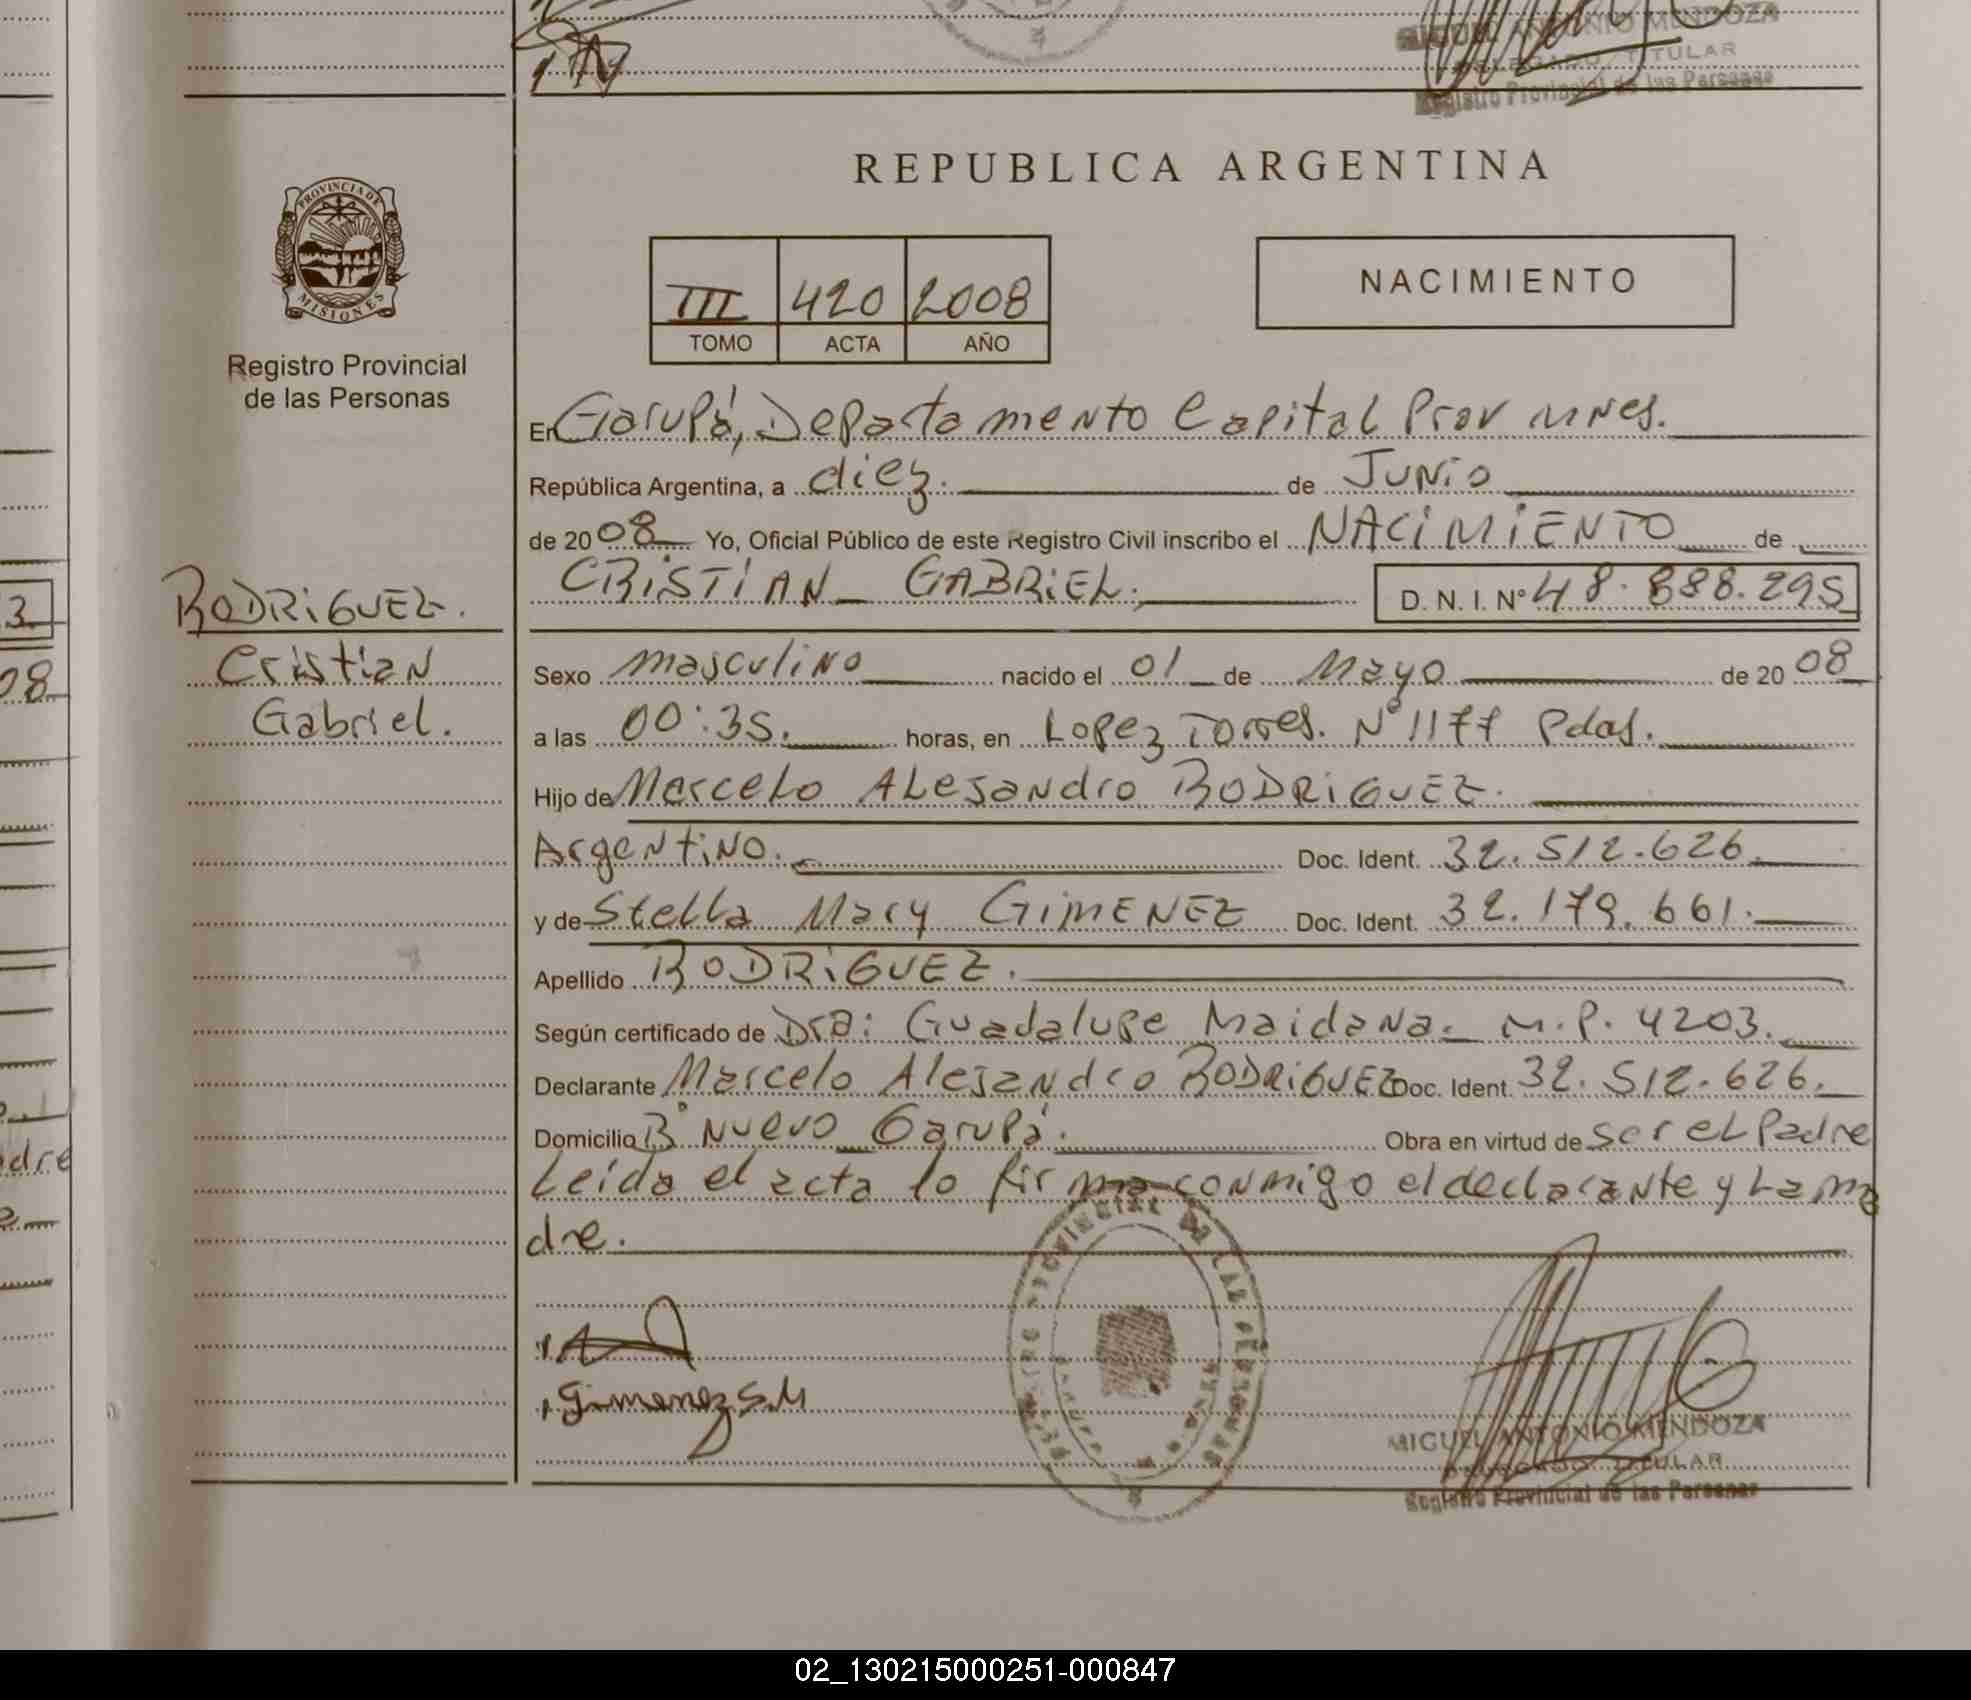 MIGUEL ANTONIO MENDOZA
DELEGADO TITULAR
Registro Provincial de las Personas
REPUBLICA ARGENTINA
PROVINCIA DE
MISIONES
III 420 2008
TOMO ACTA AÑO
NACIMIENTO
Registro Provincial
de las Personas
En Garupá, Departamento Capital Prov Mnes.
República Argentina, a diez. de Junio
de 2008 Yo, Oficial Público de este Registro Civil inscribo el NACIMIENTO de
CRISTIAN GABRIEL. D. N. I. Nº 48.888.295
RODRIGUEZ.
Cristian
Gabriel.
Sexo masculino nacido el 01 de Mayo de 2008
a las 00:35. horas, en Lopez Torres. Nº 1177 Pdas.
Hijo de Marcelo Alejandro RODRIGUEZ.
Argentino. Doc. Ident. 32.512.626.
y de Stella Mary GIMENEZ Doc. Ident. 32.179.661.
Apellido RODRIGUEZ.
Según certificado de Dra: Guadalupe Maidana. M.P. 4203.
Declarante Marcelo Alejandro RODRIGUEZ Doc. Ident. 32.512.626.
Domicilio Bº Nuevo Garupá. Obra en virtud de ser el Padre
Leída el acta lo firma conmigo el declarante y la ma
dre.
Gimenez S.M
MIGUEL ANTONIO MENDOZA
DELEGADO TITULAR
Registro Provincial de las Personas
02_130215000251-000847